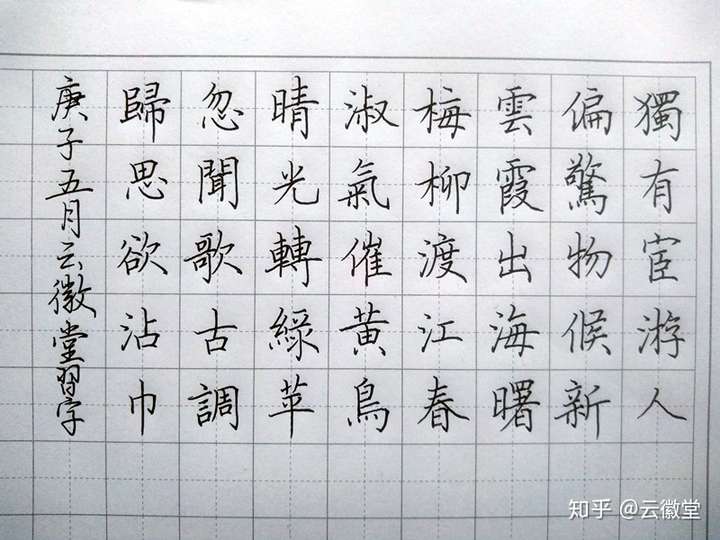 獨有宦游人
偏驚物候新
雲霞出海曙
梅柳渡江春
淑氣催黃鳥
晴光轉綠苹
忽聞歌古調
歸思欲沾巾
庚子五月云徽堂習字
知乎 @云徽堂